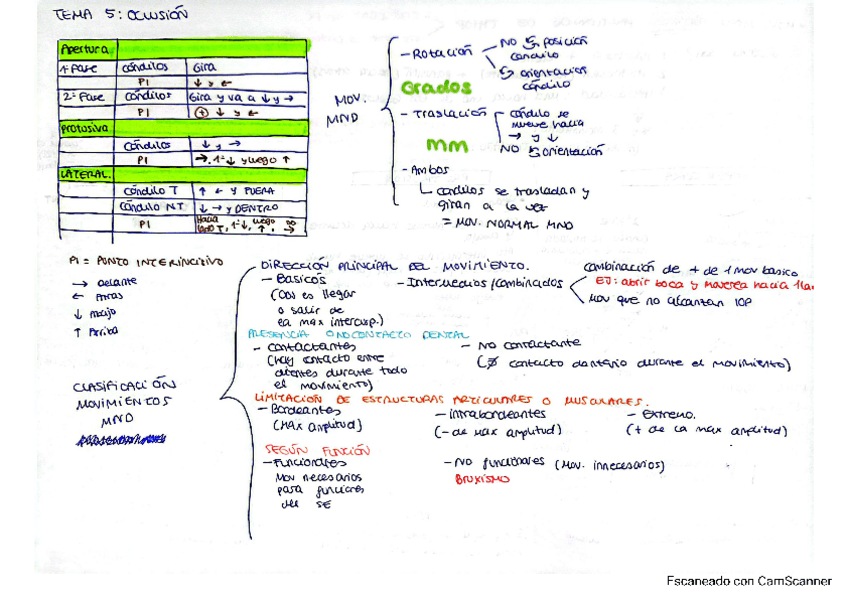 TEMA 5: OCLUSIÓN
Apertura
1ª Fase cóndilos Gira
PI ↓ y ←
2ª Fase cóndilos Gira y va a ↓ y →
PI + ↓ y ←
Protusiva
cóndilos ↓ y →
PI →, 1º ↓ y luego ↑
LATERAL.
cóndilo T ↑ ← y FUERA
cóndilo NT ↓ → y DENTRO
PI Hacia lado T, 1º ↓, luego ↑,
MOV.
MND
- ROTACIÓN
NO posición
cóndilo
orientación
cóndilo
Grados
- TRASLACIÓN
cóndilo se
mueve hacia
→ y ↓
NO orientación
mm
- Ambos
cóndilos se trasladan y
giran a la vez
= MOV. NORMAL MND
PI = PUNTO INTERINCISIVO
→ Delante
← Atrás
↓ Abajo
↑ Arriba
CLASIFICACIÓN
MOVIMIENTOS
MND
DIRECCIÓN PRINCIPAL DEL MOVIMIENTO.
- Básicos
(Obj es llegar
o salir de
la max intercusp.)
- Intermedios/combinados
combinación de + de 1 mov básico
EJ: abrir boca y moverla hacia 1 la.
Mov que no alcanzan IOP
PRESENCIA O NO CONTACTO DENTAL
- contactantes
(Hay contacto entre
dientes durante todo
el movimiento)
- NO contactante
(∅ contacto dentario durante el movimiento)
LIMITACIÓN DE ESTRUCTURAS ARTICULARES O MUSCULARES.
- Bordeantes
(MAX amplitud)
- intrabordeantes
(- de max amplitud)
- extremo.
(+ de la max amplitud)
SEGÚN FUNCIÓN
- Funcionales
Mov necesarios
para funciones
del SE
- No funcionales (Mov. innecesarios)
BRUXISMO
Escaneado con CamScanner